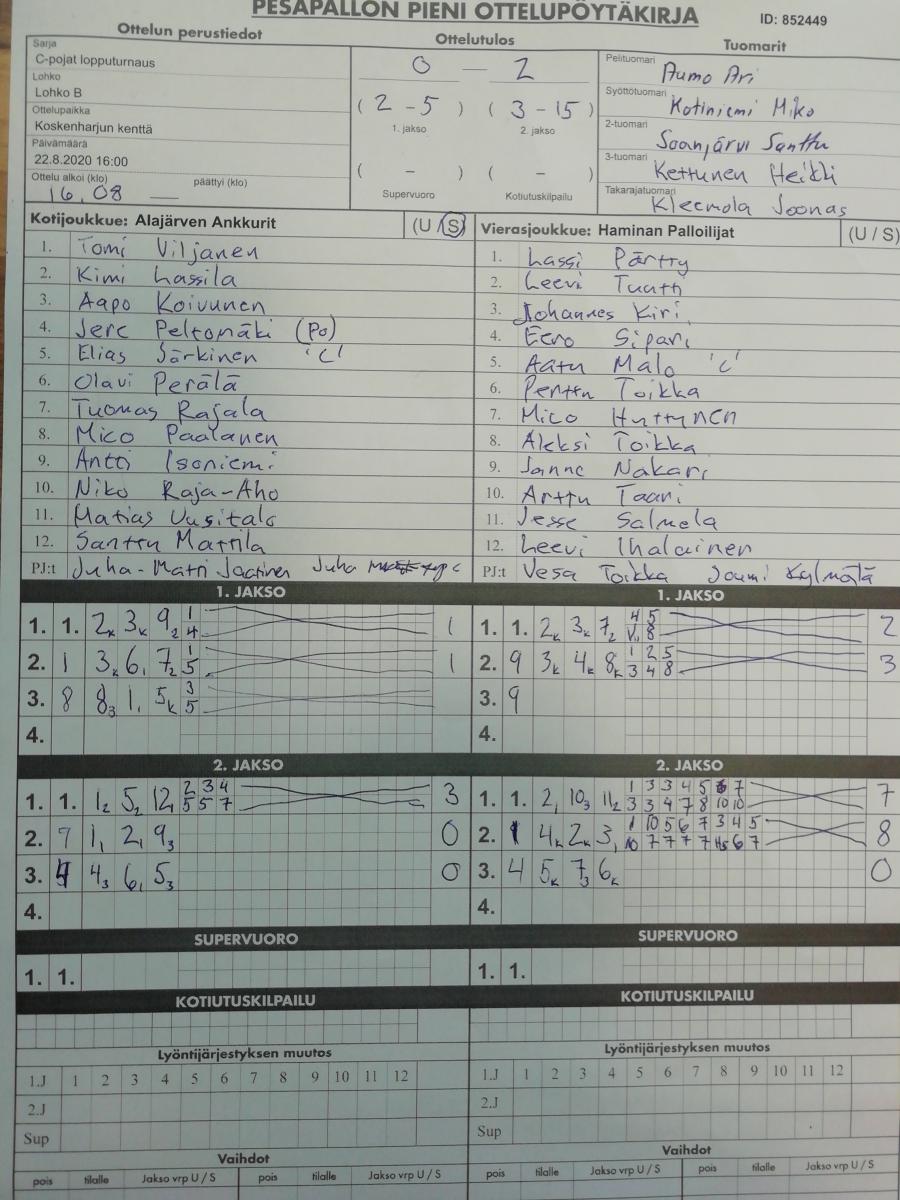 PESÄPALLON PIENI OTTELUPÖYTÄKIRJA ID: 852449
Ottelun perustiedot Ottelutulos Tuomarit
Sarja
C-pojat lopputurnaus
Lohko
Lohko B
Ottelupaikka
Koskenharjun kenttä
Päivämäärä
22.8.2020 16:00
Ottelu alkoi (klo) päättyi (klo)
16.08 —
0 — 2
( 2 - 5 ) ( 3 - 15 )
1. jakso 2. jakso
( - ) ( - )
Supervuoro Kotiutuskilpailu
Pelituomari
Aumo Ari
Syöttötuomari
Kotiniemi Miko
2-tuomari
Soanjärvi Santtu
3-tuomari
Kettunen Heikki
Takarajatuomari
Kleemola Joonas
Kotijoukkue: Alajärven Ankkurit (U / S)
1. Tomi Viljanen
2. Kimi Lassila
3. Aapo Koivunen
4. Jere Peltomäki (Po)
5. Elias Särkinen 'C'
6. Olavi Perälä
7. Tuomas Rajala
8. Mico Paalanen
9. Antti Isoniemi
10. Niko Raja-Aho
11. Matias Uusitalo
12. Santtu Mattila
PJ:t Juha-Matti Jaatinen Juha
Vierasjoukkue: Haminan Palloilijat (U / S)
1. Lassi Pärtty
2. Leevi Tuatti
3. Johannes Kiri
4. Eero Sipari
5. Aatu Malo 'C'
6. Perttu Toikka
7. Mico Huttunen
8. Aleksi Toikka
9. Janne Nakari
10. Arttu Taari
11. Jesse Salmela
12. Leevi Ihalainen
PJ:t Vesa Toikka Joumi Kylmälä
1. JAKSO
1. 1. 2k 3k 92 1 4 1
2. 1 3k 61 72 1 5 1
3. 8 83 11 5k 3 5
4.
1. JAKSO
1. 1. 2k 3k 72 4 5 V 8 2
2. 9 3k 4k 8k 1 2 5 3 4 8 3
3. 9
4.
2. JAKSO
1. 1. 12 52 121 2 3 4 5 5 7 3
2. 7 11 21 93 0
3. 4 43 61 53 0
4.
2. JAKSO
1. 1. 21 103 112 1 3 3 4 5 6 7 3 3 4 7 8 10 10 7
2. 1 4k 2k 31 1 10 5 6 7 3 4 5 10 7 7 7 7 45 6 7 8
3. 4 5k 73 6k 0
4.
SUPERVUORO
1. 1.
SUPERVUORO
1. 1.
KOTIUTUSKILPAILU
KOTIUTUSKILPAILU
Lyöntijärjestyksen muutos
1.J 1 2 3 4 5 6 7 8 9 10 11 12
2.J
Sup
Lyöntijärjestyksen muutos
1.J 1 2 3 4 5 6 7 8 9 10 11 12
2.J
Sup
Vaihdot
pois tilalle Jakso vrp U / S pois tilalle Jakso vrp U / S
Vaihdot
pois tilalle Jakso vrp U / S pois tilalle Jakso vrp U / S